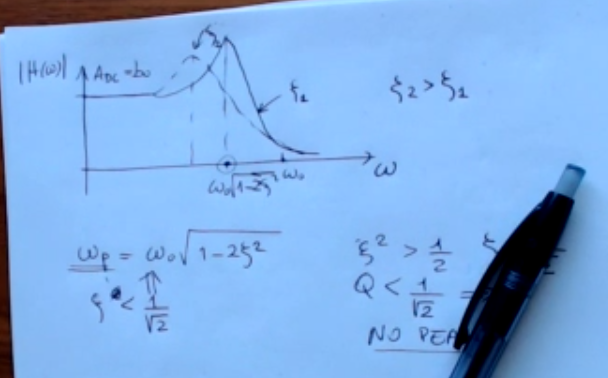 |H(ω)| A_DC = b₀ ξ₂
ξ₁
ξ₂ > ξ₁
ω₀√1-2ξ² ω₀ ω
ω_p = ω₀ √1-2ξ²
ξ < 1/√2
ξ² > 1/2 ξ
Q < 1/√2 =
NO PEA